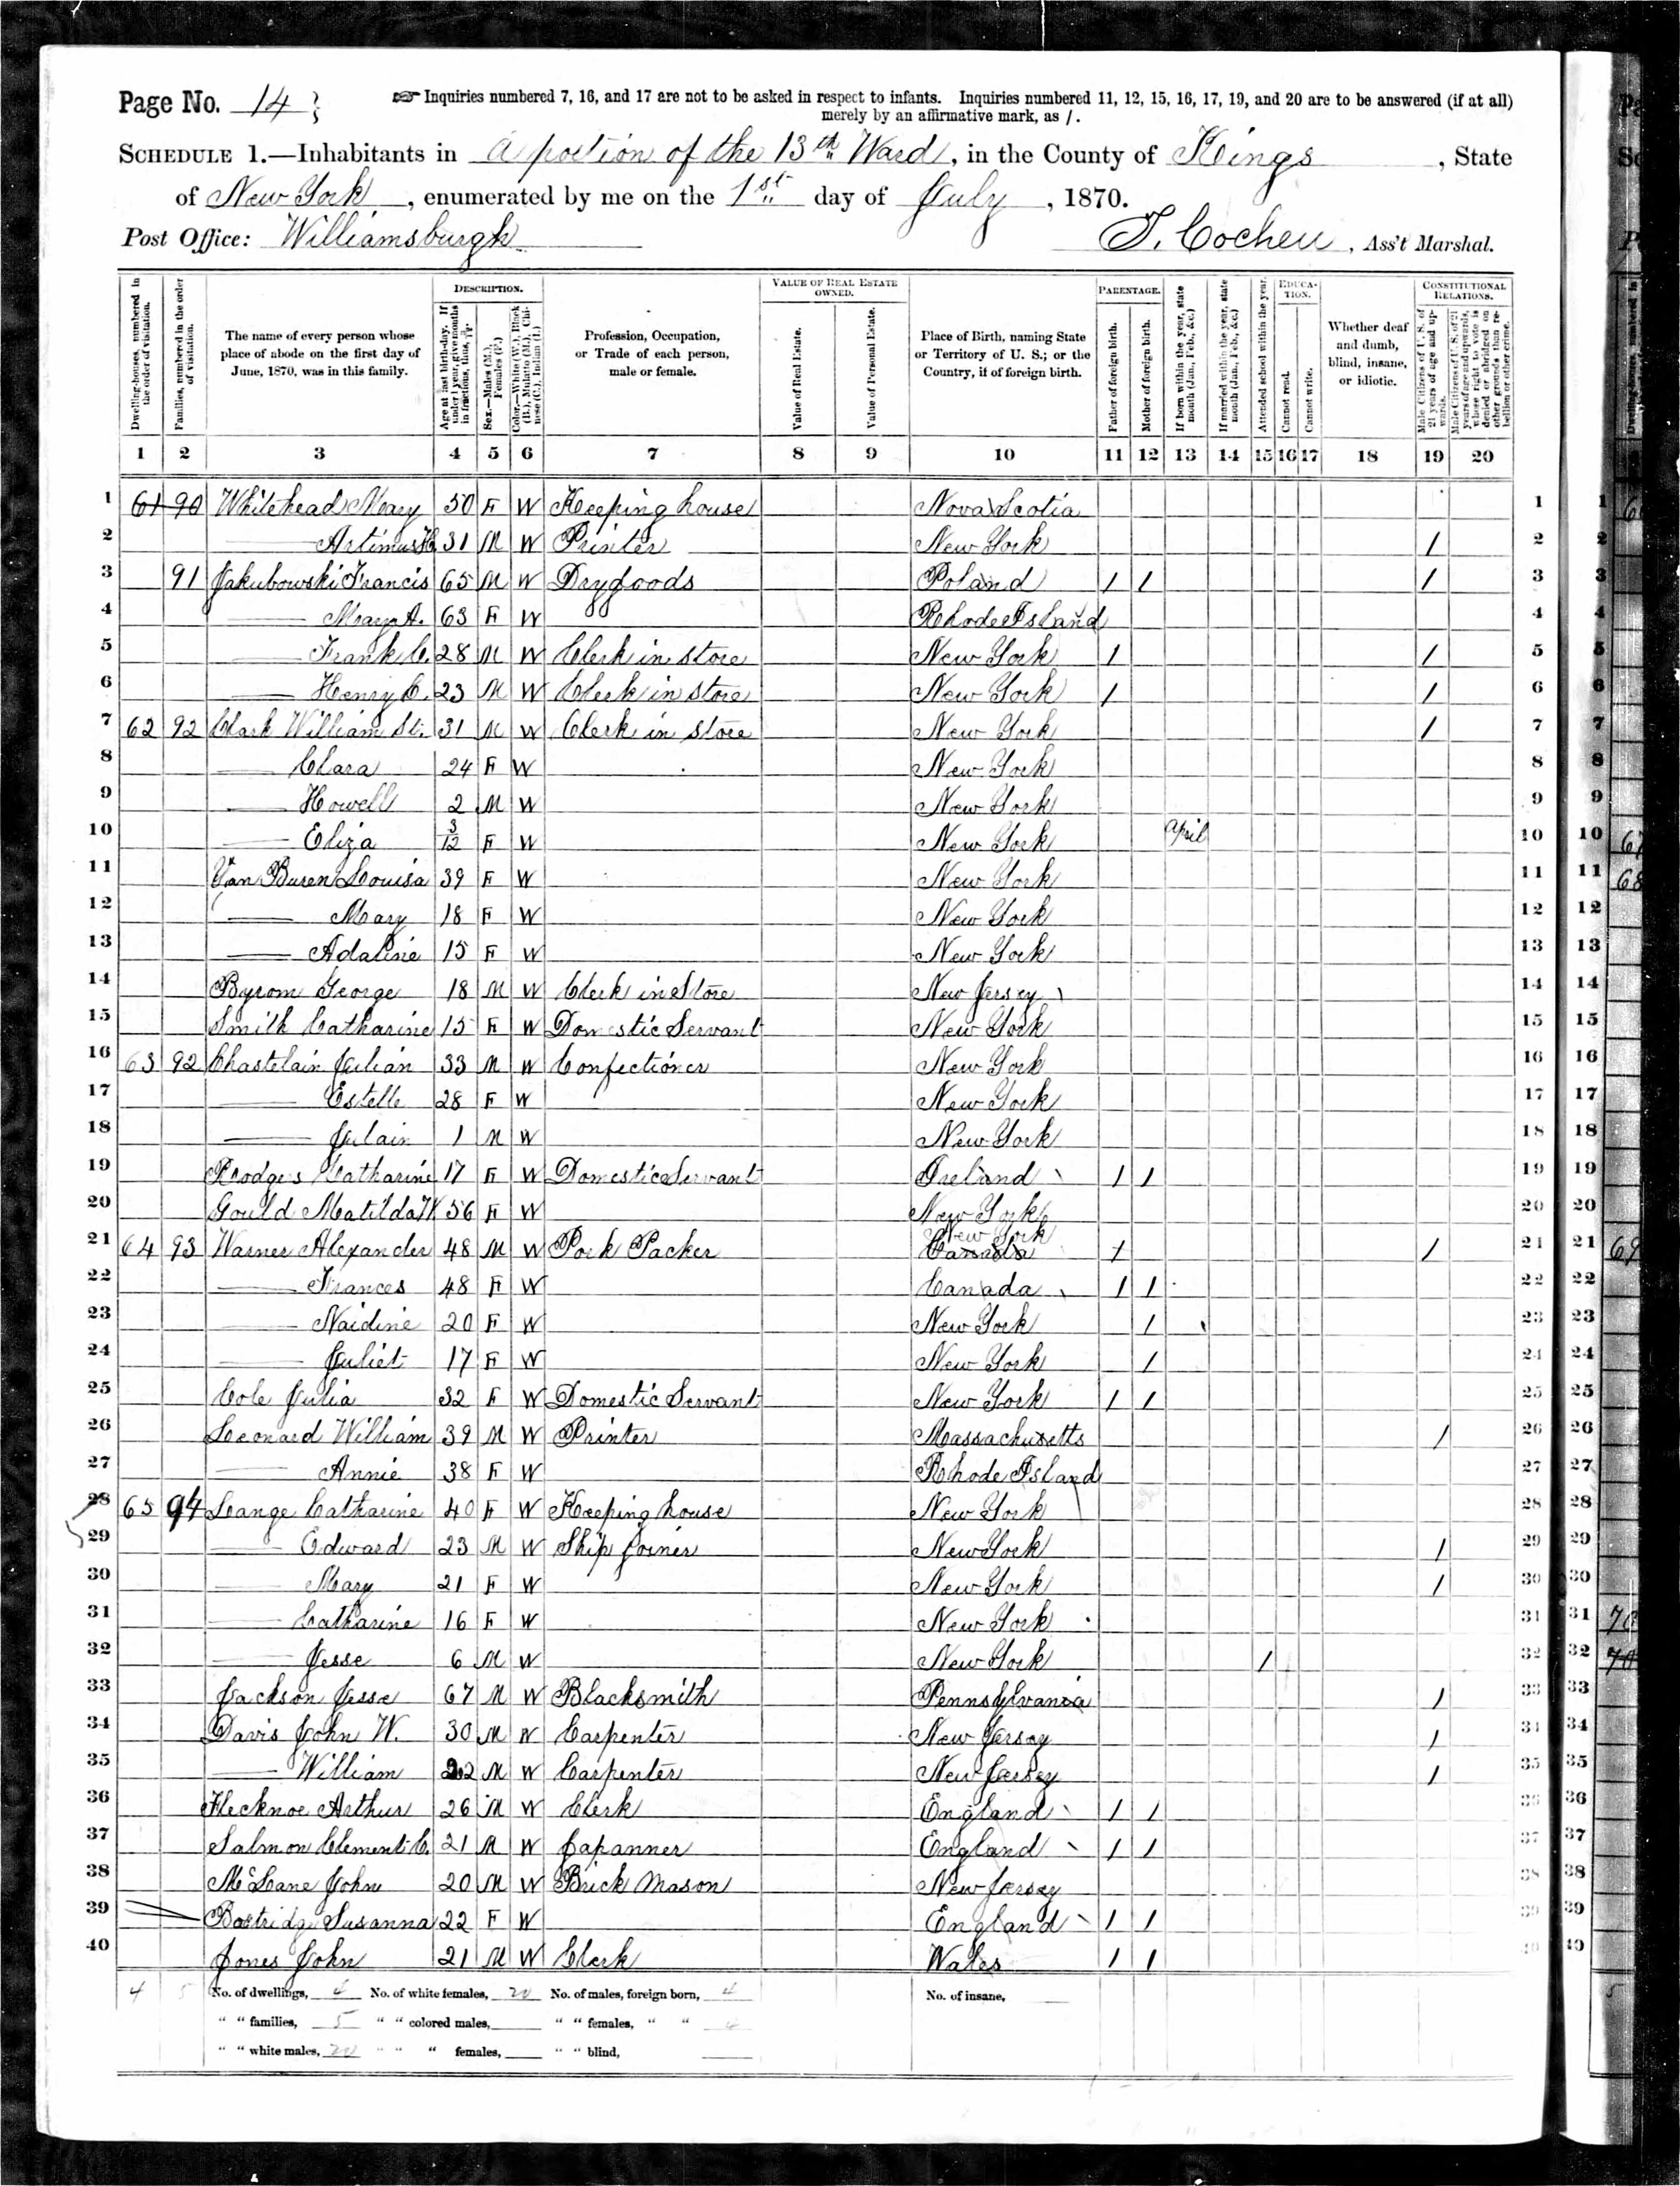 Page No. 14
☞ Inquiries numbered 7, 16, and 17 are not to be asked in respect to infants. Inquiries numbered 11, 12, 15, 16, 17, 19, and 20 are to be answered (if at all)
merely by an affirmative mark, as /.
SCHEDULE 1.—Inhabitants in a portion of the 13th Ward, in the County of Kings, State
of New York, enumerated by me on the 1st day of July, 1870.
Post Office: Williamsburgh
T. Cocheu, Ass't Marshal.
DESCRIPTION.
VALUE OF REAL ESTATE OWNED.
PARENTAGE.
EDUCATION.
CONSTITUTIONAL RELATIONS.
Dwelling-houses, numbered in the order of visitation.
Families, numbered in the order of visitation.
The name of every person whose place of abode on the first day of June, 1870, was in this family.
Age at last birth-day. If under 1 year, give months in fractions, thus, 3/12.
Sex.—Males (M.), Females (F.)
Color.—White (W.), Black (B.), Mulatto (M.), Chinese (C.), Indian (I.)
Profession, Occupation, or Trade of each person, male or female.
Value of Real Estate.
Value of Personal Estate.
Place of Birth, naming State or Territory of U. S.; or the Country, if of foreign birth.
Father of foreign birth.
Mother of foreign birth.
If born within the year, state month (Jan., Feb., &c.)
If married within the year, state month (Jan., Feb., &c.)
Attended school within the year.
Cannot read.
Cannot write.
Whether deaf and dumb, blind, insane, or idiotic.
Male Citizens of U. S. of 21 years of age and upwards.
Male Citizens of U. S. of 21 years of age and upwards, whose right to vote is denied or abridged on other grounds than rebellion or other crime.
1 2 3 4 5 6 7 8 9 10 11 12 13 14 15 16 17 18 19 20
1 61 90 Whitehead Mary 50 F W Keeping house Nova Scotia 1
2 —— Artimus H. 31 M W Printer New York / 2
3 91 Jakubowski Francis 65 M W Drygoods Poland / / / 3
4 —— Mary A. 63 F W Rhode Island 4
5 —— Frank C. 28 M W Clerk in store New York / / 5
6 —— Henry C. 23 M W Clerk in store New York / / 6
7 62 92 Clark William St. 31 M W Clerk in store New York / 7
8 —— Clara 24 F W New York 8
9 —— Howell 2 M W New York 9
10 —— Eliza 3/12 F W New York April 10
11 Van Buren Louisa 39 F W New York 11
12 —— Mary 18 F W New York 12
13 —— Adaline 15 F W New York 13
14 Byrom George 18 M W Clerk in Store New Jersey 14
15 Smith Catharine 15 F W Domestic Servant New York 15
16 63 92 Chastelain Julian 33 M W Confectioner New York 16
17 —— Estelle 28 F W New York 17
18 —— Julain 1 M W New York 18
19 Rodgers Catharine 17 F W Domestic Servant Ireland / / 19
20 Gould Matilda W 56 F W New York 20
21 64 93 Warner Alexander 48 M W Pork Packer New York Canada / / 21
22 —— Frances 48 F W Canada / / 22
23 —— Naidine 20 F W New York / 23
24 —— Juliet 17 F W New York / 24
25 Cole Julia 32 F W Domestic Servant New York / / 25
26 Leonard William 39 M W Printer Massachusetts / 26
27 —— Annie 38 F W Rhode Island 27
28 65 94 Lange Catharine 40 F W Keeping house New York 28
29 —— Edward 23 M W Ship Joiner New York / 29
30 —— Mary 21 F W New York / 30
31 —— Catharine 16 F W New York 31
32 —— Jesse 6 M W New York / 32
33 Jackson Jesse 67 M W Blacksmith Pennsylvania / 33
34 Davis John W. 30 M W Carpenter New Jersey / 34
35 —— William 22 M W Carpenter New Jersey / 35
36 Flecknoe Arthur 26 M W Clerk England / / 36
37 Salmon Clement C. 21 M W Japanner England / / 37
38 McLane John 20 M W Brick Mason New Jersey 38
39 Bostridge Susanna 22 F W England / / 39
40 Jones John 21 M W Clerk Wales / / 40
4 5 No. of dwellings, 4 No. of white females, 20 No. of males, foreign born, 4 No. of insane,
" " families, 5 " " colored males, " " females, " " 4
" " white males, 20 " " " females, " " blind,